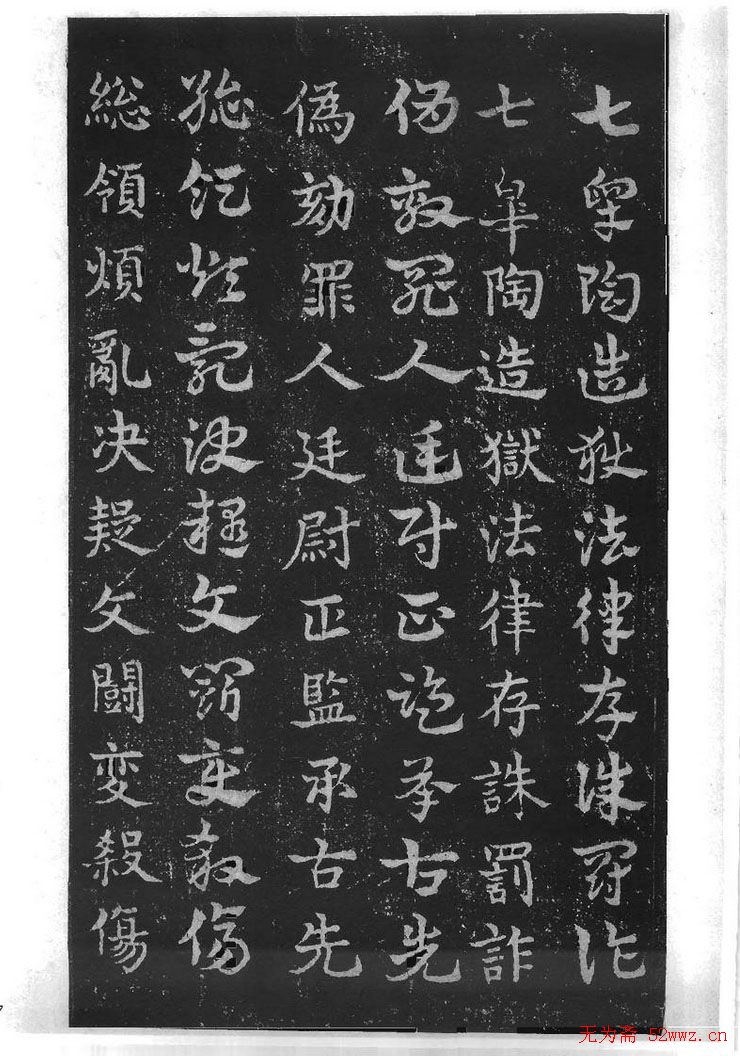 七皋陶造獄法律存誅罰詐
七皋陶造獄法律存誅罰詐
偽劾罪人廷尉正監承古先
偽劾罪人廷尉正監承古先
総領煩亂决疑文闘変殺傷
総領煩亂决疑文闘変殺傷
无为斋 52wwz.cn